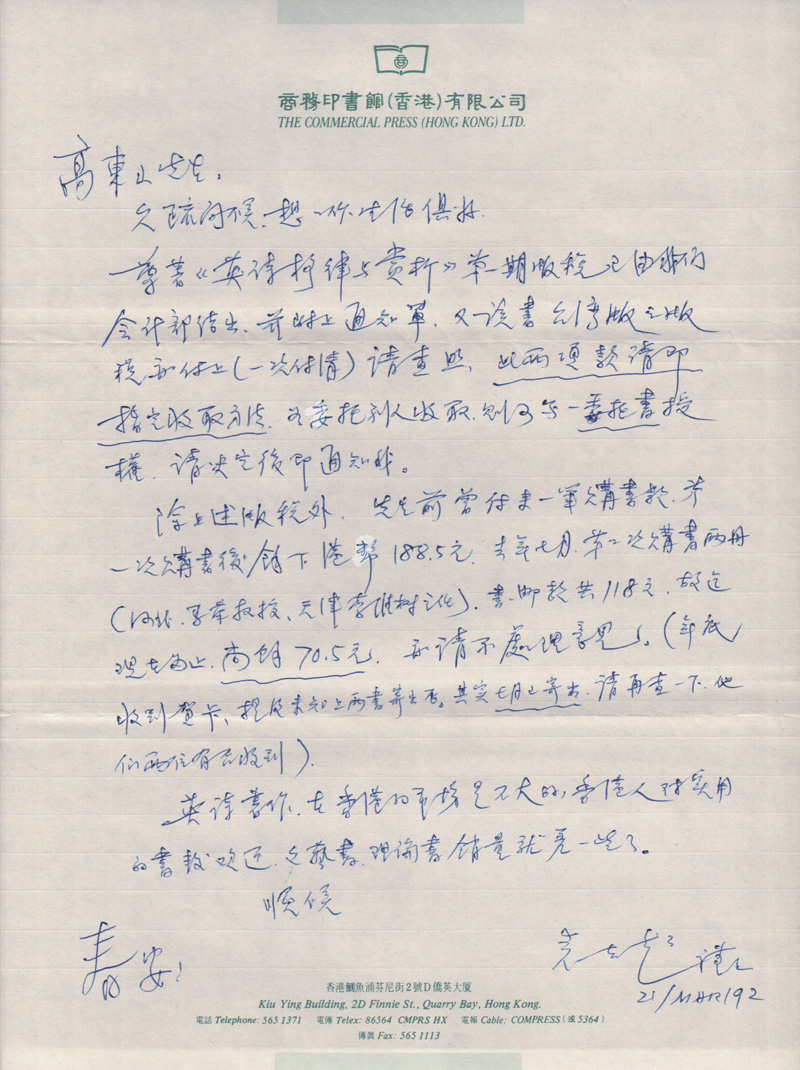 商務印書館(香港)有限公司
THE COMMERCIAL PRESS (HONG KONG) LTD.
高東山先生：
久疏问候，想一你生活俱好。
尊著《英诗格律与赏析》第一期版税已由我们
会计部结出，前附上通知單，又该書台湾版之版
税亦付上(一次付清)请查照，此两項款请即
指定收取方法，如委托别人收取，则可写一委托書授
權，请决定後即通知我。
除上述版税外，先生前曾付来一筆購書款，第
一次購書後餘下港幣188.5元，去年七月，第二次購書两册
(河北教授、天津李)，書、邮款共118元，故迄
现在为止，尚餘70.5元，亦请示處理意見。(年底
收到贺卡，提及未知上两書寄出否。其实七月已寄出，请再查一下，他
们两位有否收到)。
英诗著作，在香港的市場是不大的，香港人对实用
的書較欢迎，文藝書、理論書销量就差一些了。
順候
春安！
謹上
21/MAR/92
香港鰂魚涌芬尼街2號D僑英大厦
Kiu Ying Building, 2D Finnie St., Quarry Bay, Hong Kong.
電話 Telephone: 565 1371 電傳 Telex: 86564 CMPRS HX 電報 Cable: COMPRESS (或5364)
傳眞 Fax: 565 1113